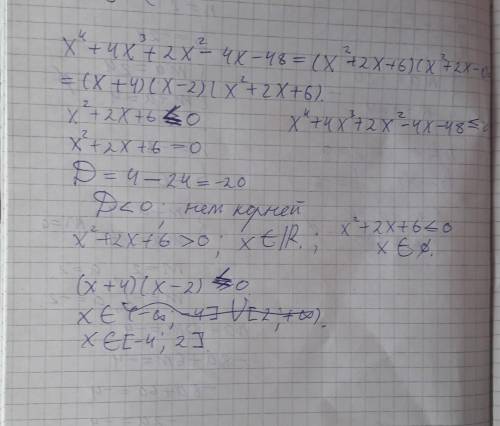 x⁴+4x³+2x²-4x-48=(x²+2x+6)(x²+2x-
=(x+4)(x-2)(x²+2x+6).
x²+2x+6≤0 x⁴+4x³+2x²-4x-48≤
x²+2x+6=0
D=4-24=-20
D<0; нет корней
x²+2x+6>0; x∈R.; x²+2x+6≤0
x∈∅.
(x+4)(x-2)≤0
x∈(-∞; -4]∪[2;+∞).
x∈[-4; 2].